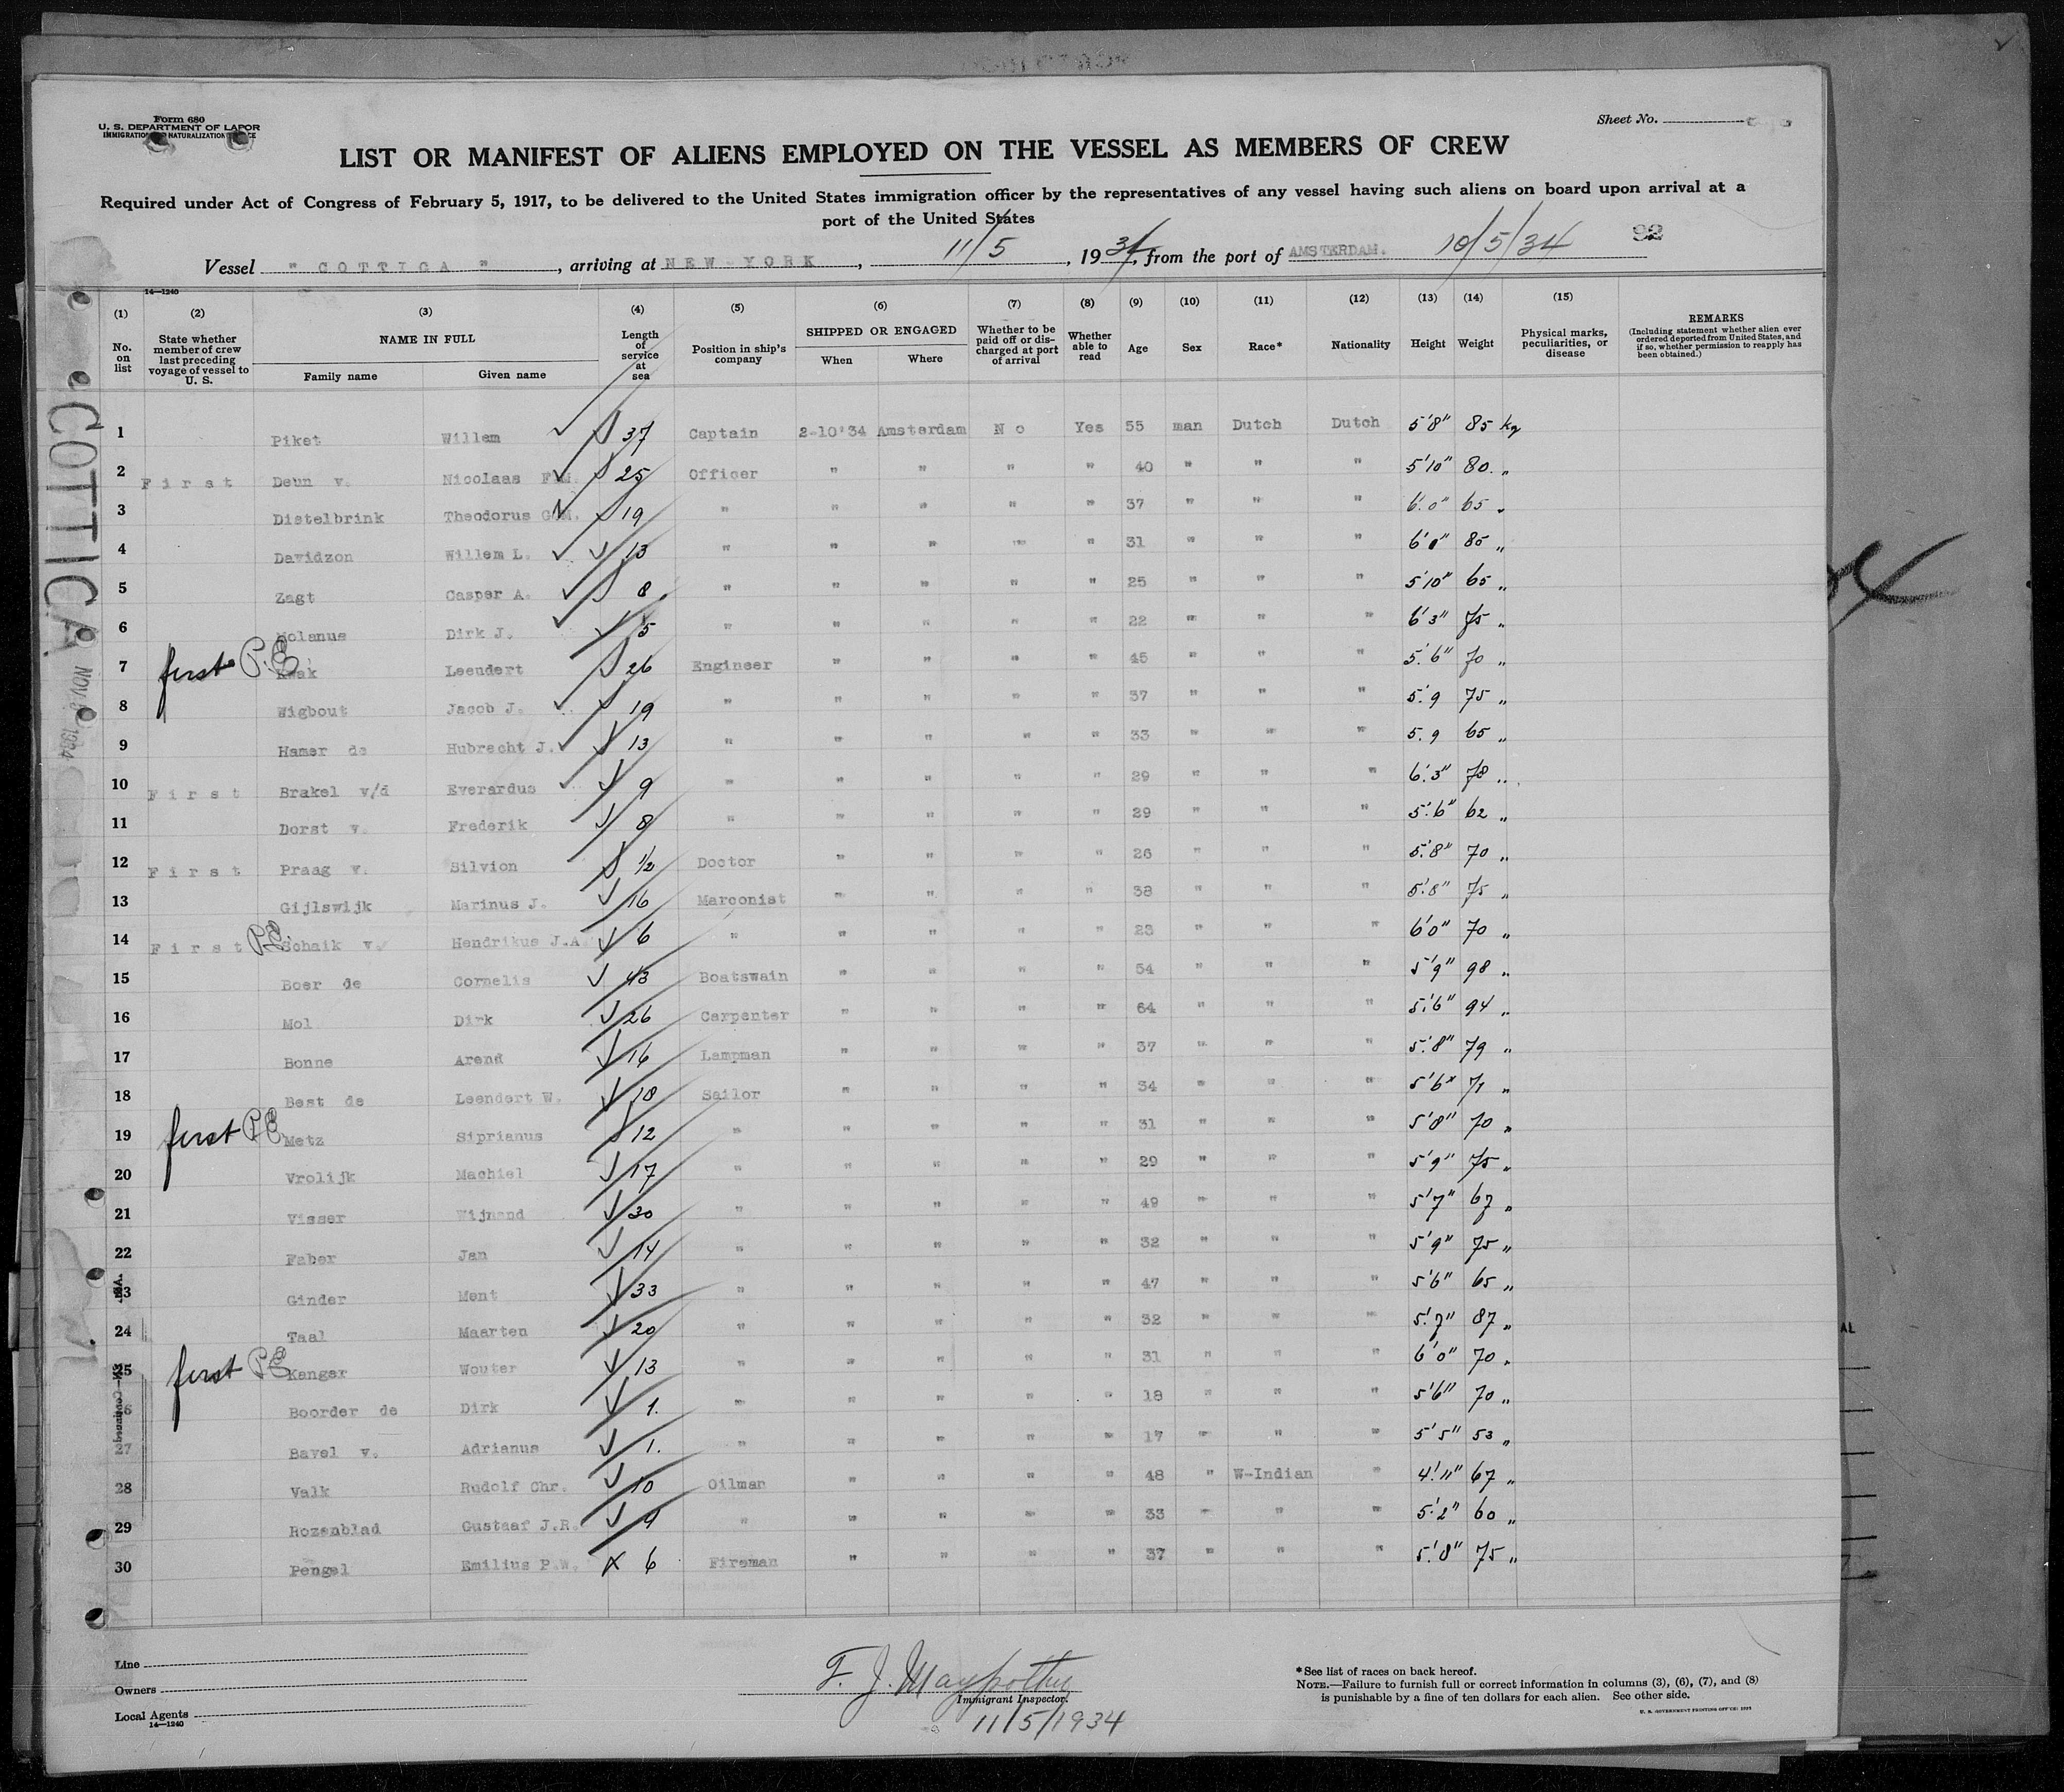 Form 680
U. S. DEPARTMENT OF LABOR
IMMIGRATION AND NATURALIZATION SERVICE
Sheet No.
LIST OR MANIFEST OF ALIENS EMPLOYED ON THE VESSEL AS MEMBERS OF CREW
Required under Act of Congress of February 5, 1917, to be delivered to the United States immigration officer by the representatives of any vessel having such aliens on board upon arrival at a
port of the United States
92
Vessel " COTTICA " , arriving at NEW YORK , 11/5 , 1934, from the port of AMSTERDAM. 10/5/34
14—1240
(1) (2) (3) (4) (5) (6) (7) (8) (9) (10) (11) (12) (13) (14) (15)
No. on list
State whether member of crew last preceding voyage of vessel to U. S.
NAME IN FULL
Family name
Given name
Length of service at sea
Position in ship's company
SHIPPED OR ENGAGED
When
Where
Whether to be paid off or discharged at port of arrival
Whether able to read
Age
Sex
Race*
Nationality
Height
Weight
Physical marks, peculiarities, or disease
REMARKS
(Including statement whether alien ever ordered deported from United States, and if so, whether permission to reapply has been obtained.)
1 Piket Willem 37 Captain 2-10'34 Amsterdam No Yes 55 man Dutch Dutch 5'8" 85 kg
2 First Deun v. Nicolaas F.M. 25 Officer " " " " 40 " " " 5'10" 80 "
3 Distelbrink Theodorus G.M. 19 " " " " " 37 " " " 6'0" 65 "
4 Davidzon Willem L. 13 " " " " " 31 " " " 6'0" 85 "
5 Zagt Casper A. 8 " " " " " 25 " " " 5'10" 65 "
6 Molanus Dirk J. 5 " " " " " 22 " " " 6'3" 75 "
7 first P.E. Kwak Leendert 26 Engineer " " " " 45 " " " 5'6" 70 "
8 Wigbout Jacob J. 19 " " " " " 37 " " " 5'9 75 "
9 Hamer de Hubrecht J. 13 " " " " " 33 " " " 5.9 65 "
10 First Brakel v/d Everardus 9 " " " " " 29 " " " 6'3" 78 "
11 Dorst v. Frederik 8 " " " " " 29 " " " 5'6" 62 "
12 First Praag v. Silvion 1/2 Doctor " " " " 26 " " " 5'8" 70 "
13 Gijlswijk Marinus J. 16 Marconist " " " " 38 " " " 5'8" 75 "
14 First P.E. Schaik v. Hendrikus J.A. 6 " " " " " 23 " " " 6'0" 70 "
15 Boer de Cornelis 43 Boatswain " " " " 54 " " " 5'9" 98 "
16 Mol Dirk 26 Carpenter " " " " 64 " " " 5'6" 94 "
17 Bonne Arend 16 Lampman " " " " 37 " " " 5'8" 79 "
18 Best de Leendert W. 18 Sailor " " " " 34 " " " 5'6" 71 "
19 first P.E. Metz Siprianus 12 " " " " " 31 " " " 5'8" 70 "
20 Vrolijk Machiel 17 " " " " " 29 " " " 5'9" 75 "
21 Visser Wijnand 30 " " " " " 49 " " " 5'7" 67 "
22 Faber Jan 14 " " " " " 32 " " " 5'9" 75 "
23 Ginder Ment 33 " " " " " 47 " " " 5'6" 65 "
24 Taal Maarten 20 " " " " " 32 " " " 5'7" 87 "
25 first P.E. Kanger Wouter 13 " " " " " 31 " " " 6'0" 70 "
26 Boorder de Dirk 1. " " " " " 18 " " " 5'6" 70 "
27 Bavel v. Adrianus 1. " " " " " 17 " " " 5'5" 53 "
28 Valk Rudolf Chr. 10 Oilman " " " " 48 " W-Indian " 4'11" 67 "
29 Rozenblad Gustaaf J.R. 9 " " " " " 33 " " " 5'2" 60 "
30 Pengel Emilius P.W. 6 Fireman " " " " 37 " " " 5'8" 75 "
COTTICA NOV 5 1934
Line
Owners
Local Agents
14—1240
F. J.
Immigrant Inspector.
11/5/1934
*See list of races on back hereof.
NOTE.—Failure to furnish full or correct information in columns (3), (6), (7), and (8)
is punishable by a fine of ten dollars for each alien. See other side.
U. S. GOVERNMENT PRINTING OFFICE: